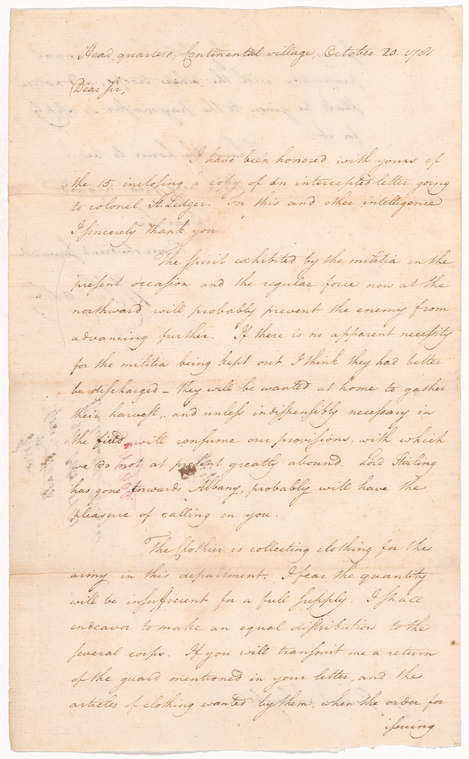 Head quarters, Continental village, October 20. 1781
Dear sir,
I have been honored with yours of
the 15. inclosing a copy of an intercepted letter going
to colonel St. Leger. For this and other intelligence
I sincerely thank you
The spirit exhibited by the militia on the
present occasion and the regular force now at the
northward will probably prevent the enemy from
advancing further. If there is no apparent necessity
for the militia being kept out I think they had better
be discharged – they will be wanted at home to gather
their harvest, and unless indispensibly necessary in
the field will consume our provisions, with which
we do not at present greatly abound. Lord Stirling
has gone towards Albany, probably will have the
pleasure of calling on you.
The Clothier is collecting clothing for the
army in this department. I fear the quantity
will be insufficient for a full supply. I shall
endeavor to make an equal distribution to the
several corps. If you will transmit me a return
of the guard mentioned in your letter, and the
articles of clothing wanted by them, when the order for
issuing